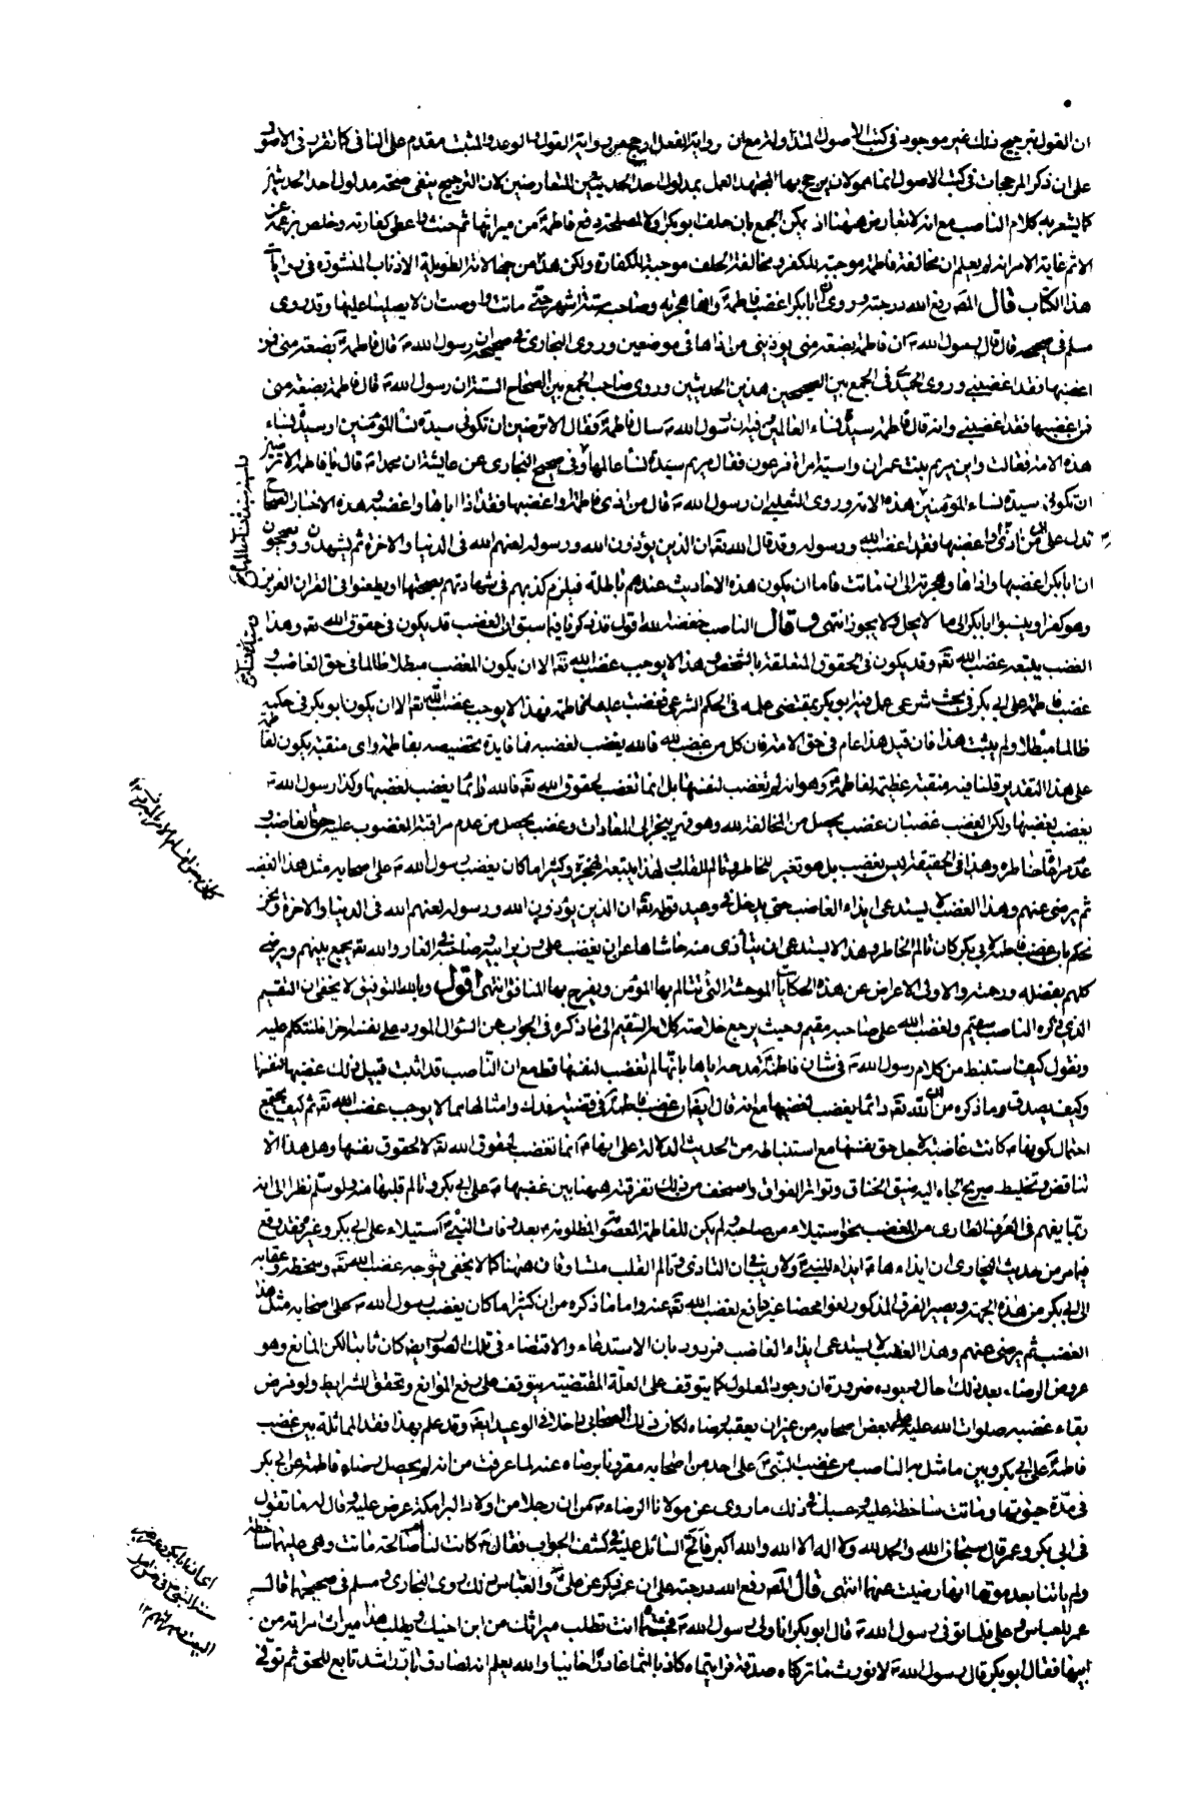 ان القول بترجيح ذلك غير موجود فى كتب الاصول المتداولة مع ان رواية الفعل ارجح من رواية القول والوعد والمثبت مقدم على النافى كما تقرر فى الاصول
على ان ذكر المرجحات فى كتب الاصول انما هو لان يرجح بها المجتهد العمل بمدلول احد الحديثين المتعارضين لان الترجيح ينفى صحة مدلول احد الحديثين
كما يشعر به كلام الناصب مع انه لا تعارض ههنا اذ يمكن الجمع بان حلف ابو بكر اولا لمصلحة دفع فاطمة عن ميراثها ثم حنث واعطى كفارته وخلص عن
الاثم غاية الامر انه لم يعلم ان مخالفة فاطمة موجبة للكفر ومخالفة الحلف موجبة للكفارة ولكن هذا من جهالاته الطويلة الاذناب المنشوذة فى
هذا الكتاب قال المصـ رفع الله درجته وروى ان ابا بكر اغضب فاطمة وانها هجرته وصاحبته ستة اشهر حتى ماتت واوصت ان لا يصلى عليها وقد روى
مسلم فى صحيحه قال قال رسول الله ص ان فاطمة بضعة منى يؤذينى من اذاها فى موضعين وروى البخارى فى صحيحه ان رسول الله ص قال فاطمة بضعة منى فمن
اغضبها فقد اغضبنى وروى الحميدى فى الجمع بين الصحيحين هذين الحديثين وروى صاحب الجمع بين الصحاح الستة ان رسول الله ص قال فاطمة بضعة منى
فمن اغضبها فقد اغضبنى وانه قال فاطمة سيدة نساء العالمين وفيه ان رسول الله ص سال فاطمة فقال الا ترضين ان تكونى سيدة نساء المؤمنين او سيدة نساء
هذه الامة فقالت واين مريم بنت عمران واسية امراة فرعون فقال مريم سيدة نساء عالمها وفى صحيح البخارى عن عايشة ان محمدا ص قال يا فاطمة الا ترضين
ان تكونى سيدة نساء المؤمنين هذه الامة وروى الثعلبى ان رسول الله ص قال من اذى فاطمة او اغضبها فقد اذا اباها واغضبه وهذه الاخبار الصحاح
تدل على ان من اذى او اغضبها فقد اغضب الله ورسوله وقد قال الله تعه ان الذين يؤذون الله ورسوله لعنهم الله فى الدنيا والاخرة ثم يشهدون ويصححون
ان ابا بكر اغضبها واذاها وهجرته الى ان ماتت فاما ان يكون هذه الاحاديث عندهم باطلة فيلزم كذبهم فى شهادتهم بصحتها او يطعنوا فى القران العزيز
وهو كفر او ينسبوا ابا بكر الى ما لا يحل ولا يجوز انتهى قال الناصب خفضه الله اقول قد ذكرنا فيما سبق ان الغضب قد يكون فى حقوق الله تعه وهذا
الغضب يتبعه غضب الله تعه وقد يكون فى الحقوق المتعلقة بالشخص وهذا لا يوجب غضب الله تعه الا ان يكون المغضب مبطلا ظالما فى حق الغاضب و
غضب فاطمة على ابى بكر فى بحث شرعى عمل فيه ابو بكر بمقتضى علمه فى الحكم الشرعى فغضبت عليه فاطمة فهذا لا يوجب غضب الله تعه الا ان يكون ابو بكر فى حكمه
ظالما مبطلا ولم يثبت هذا فان قيل هذا عام فى حق الامة فان كل من غضب لله فالله يغضب لغضبه فما فايدة تخصيصه بفاطمة واى منقبة يكون لفاطمة
على هذا التقدير قلنا فيه منقبة عظيمة لفاطمة وهو انه لم تغضب لنفسها بل انما تغضب لحقوق الله تعه فالله دائما يغضب لغضبها وكذا رسول الله ص
يغضب لغضبها ولكن الغضب غضبان غضب يحصل من المخالفة لله وهو فى ينجر الى المعادات وغضب يحصل من عدم مراقبة المغضوب عليه حق الغاضب و
عدم مراقبة خاطره وهذا فى الحقيقة ليس بغضب بل هو تغير للخاطر وتالم للقلب ولهذا يتبعه الهجرة وكثيرا ما كان يغضب رسول الله ص على اصحابه مثل هذا الغضب
ثم يرضى عنهم وهذا الغضب لا يستدعى ايذاء الغاضب حتى يدخل فى وعيد قوله تعه ان الذين يؤذون الله ورسوله لعنهم الله فى الدنيا والاخرة ونحن
نحكم بان غضب فاطمة لابى بكر كان تالم الخاطر وهذا لا يستدعى ان يتأذى منه حاشاها عن ان يغضب على وزير ابيه وصاحبه فى الغار والله تعه يجمع بينهم ويرضى
كلهم بفضله ورحمته والاولى الاعراض عن هذه الحكايات الموحشة التى يتالم بها المؤمن ويفرح بها المنافق انتهى اقول وبالله التوفيق لا يخفى ان التقسيم
الذى ذكره الناصب سقيم ولغضب الله على صاحبه مقيم وحيث يرجع خلاصة كلامه السقيم الى ما ذكره فى الجواب عن السؤال المورد على نفسه اخرا فلنتكلم عليه
ونقول كيف استنبط من كلام رسول الله ص فى شان فاطمة ع مدحه اياها بانها لم تغضب لنفسها قط مع ان الناصب قد اثبت قبيل ذلك غضبها لنفسها
وكيف يصدق وما ذكره من ان الله تعه دائما يغضب لغضبها مع انه قال ايضا ان غضب فاطمة ع فى قضية فدك وامثالها مما لا يوجب غضب الله تعه ثم كيف يجتمع
احتمال كونها ع كانت غاضبة لاجل حق نفسها مع استنباطه من الحديث الدلالة على انها ع انما تغضب لحقوق الله تعه لا لحقوق نفسها وهل هذا الا
تناقض وتخليط صريح الجاه اليه ضيق الخناق وتواتر الفواق واسخف من ذلك تفرقته ههنا بين غضبها ع على ابى بكر وتالم قلبها منه ولو سلم نظرا الى انه
ربما يفهم فى العرف الطارى من الغضب نحو استيلاء من صاحبه ولم يكن للفاطمة المعصومة المظلومة ع بعد وفات النبى ص استيلاء على ابى بكر وعمر فقد وقع
فيما مر من حديث البخارى ان ايذاءها ع ايذاء للنبى ص ولا ريب فى ان التاذى وتالم القلب متساوقان ههنا كما لا يخفى فيتوجه غضب الله تعه وسخطه وعقابه
الى ابى بكر من هذه الجهة ويصير الفرق المذكور لغوا محضا غير دافع لغضب الله تعه عنه واما ما ذكره من ان كثيرا ما كان يغضب رسول الله ص على اصحابه مثل هذا
الغضب ثم يرضى عنهم وهذا الغضب لا يستدعى ايذاء الغاضب فمردود بان الاستدعاء والاقتضاء فى تلك الصورة ايضا كان ثابتا لكن المانع وهو
عروض الرضاء بعد ذلك حال بينه ضرورة ان وجود المعلول كما يتوقف على العلة المقتضية يتوقف على رفع الموانع وتحقق الشرايط ولو فرض
بقاء غضبه صلوات الله عليه على بعض اصحابه من غير ان يعقبه رضاه لكان ذلك الصحابى داخلا فى الوعيد ايضا وقد علم بهذا فقد المماثلة بين غضب
فاطمة ع على ابى بكر وبين ما مثل به الناصب من غضب النبى ص على احد من اصحابه مقرونا برضاه عنه لما عرفت من انه لم يحصل رضاء فاطمة عن ابى بكر
فى مدة حيوتها وماتت ساخطة عليه وحسبك فى ذلك ما روى عن مولانا الرضاء ع من ان رجلا من اولاد البرامكة عرض عليه وقال له ما تقول
فى ابى بكر وعمر قال سبحان الله والحمد لله ولا اله الا الله والله اكبر فالح السائل عليه فى كشف الجواب فقال ع كانت لنا ام صالحة ماتت وهى عليهما ساخطة
ولم ياتنا بعد موتها انها رضيت عنهما انتهى قال المصـ رفع الله درجته على ان عمر ذكر عن على ع والعباس ذلك روى البخارى ومسلم فى صحيحهما قال
عمر للعباس وعلى فلما توفى رسول الله ص قال ابو بكر انا ولى رسول الله ص فجئتما انت تطلب ميراثك من ابن اخيك ويطلب هذا ميراث امراته من
ابيها فقال ابو بكر قال رسول الله ص لا نورث ما تركناه صدقة فرايتماه كاذبا اثما غادرا خائنا والله يعلم انه لصادق بار راشد تابع للحق ثم توفى